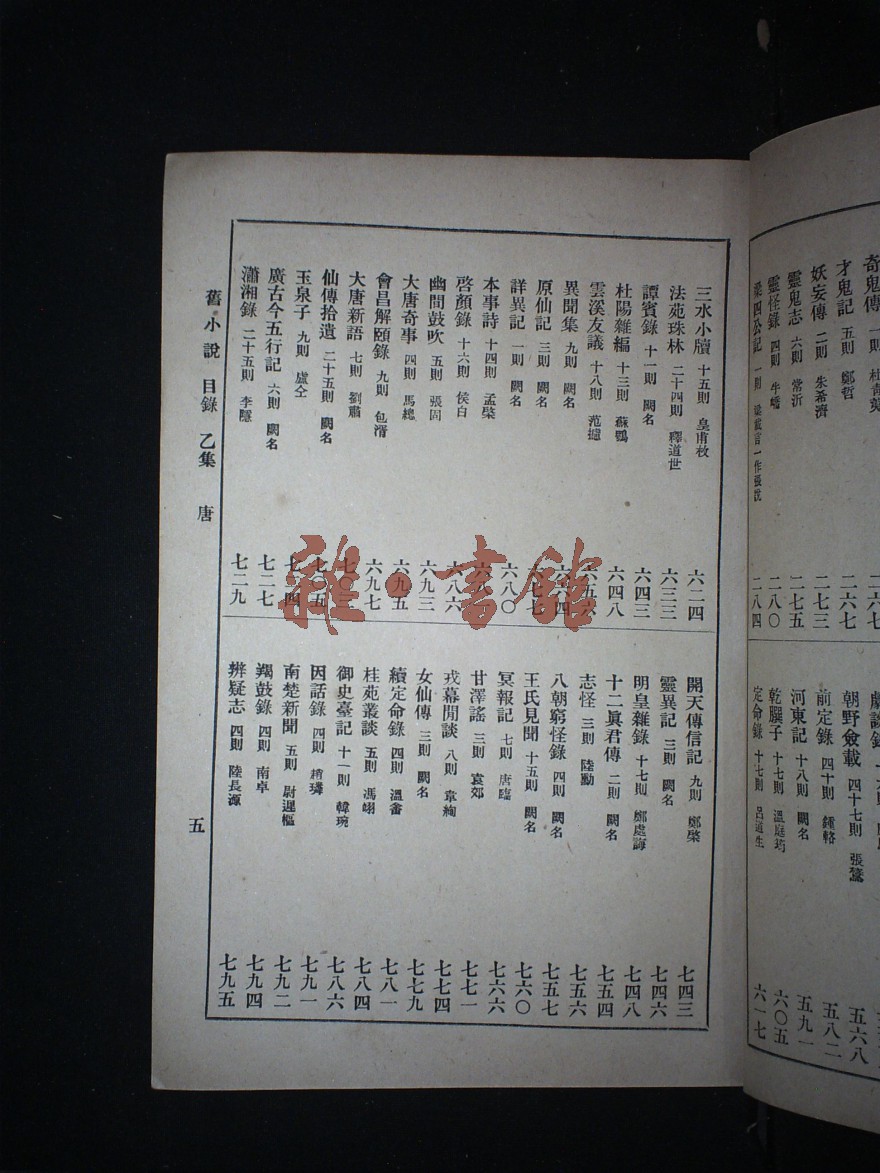 奇鬼傳 一則 杜靑荑 二六七
才鬼記 五則 鄭哲 二六七
妖妄傳 二則 朱希濟 二七三
靈鬼志 六則 常沂 二七五
靈怪錄 四則 牛嶠 二八〇
梁四公記 一則 梁載言一作張說 二八四
朝野僉載 四十七則 張鷟 五六八
前定錄 四十則 鍾輅 五八二
河東記 十八則 闕名 五九一
乾𦠆子 十七則 溫庭筠 六〇五
定命錄 十七則 呂道生 六一七
三水小牘 十五則 皇甫枚 六二四
法苑珠林 二十四則 釋道世 六三三
譚賓錄 十一則 闕名 六四三
杜陽雜編 十三則 蘇鶚 六四八
雲溪友議 十八則 范攄 六五六
異聞集 九則 闕名 六六四
原仙記 三則 闕名 六七七
詳異記 一則 闕名 六八〇
本事詩 十四則 孟棨
啓顏錄 十六則 侯白 六八六
幽閒鼓吹 五則 張固 六九三
大唐奇事 四則 馬總 六九五
會昌解頤錄 九則 包湑 六九七
大唐新語 七則 劉肅
仙傳拾遺 二十五則 闕名 七〇五
玉泉子 九則 盧仝
廣古今五行記 六則 闕名 七二七
瀟湘錄 二十五則 李隱 七二九
開天傳信記 九則 鄭棨 七四三
靈異記 三則 闕名 七四六
明皇雜錄 十七則 鄭處誨 七四八
十二眞君傳 二則 闕名 七五四
志怪 三則 陸勳 七五六
八朝窮怪錄 四則 闕名 七五七
王氏見聞 十五則 闕名 七六〇
冥報記 七則 唐臨 七六六
甘澤謠 三則 袁郊 七七一
戎幕閒談 八則 韋絢 七七四
女仙傳 三則 闕名 七七九
續定命錄 四則 溫畬 七八一
桂苑叢談 五則 馮翊 七八四
御史臺記 十一則 韓琬 七八六
因話錄 四則 趙璘 七九一
南楚新聞 五則 尉遲樞 七九二
羯鼓錄 四則 南卓 七九四
辨疑志 四則 陸長源 七九五
舊小說 目錄 乙集 唐 五
雜·書館